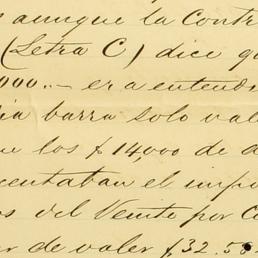 aunque la Contr
(Letra C) dice qu
000.- era entend
ia barra solo val
ue los $14,000 de a
centaban el impo
os del Veinte por C
or de valer $32.58